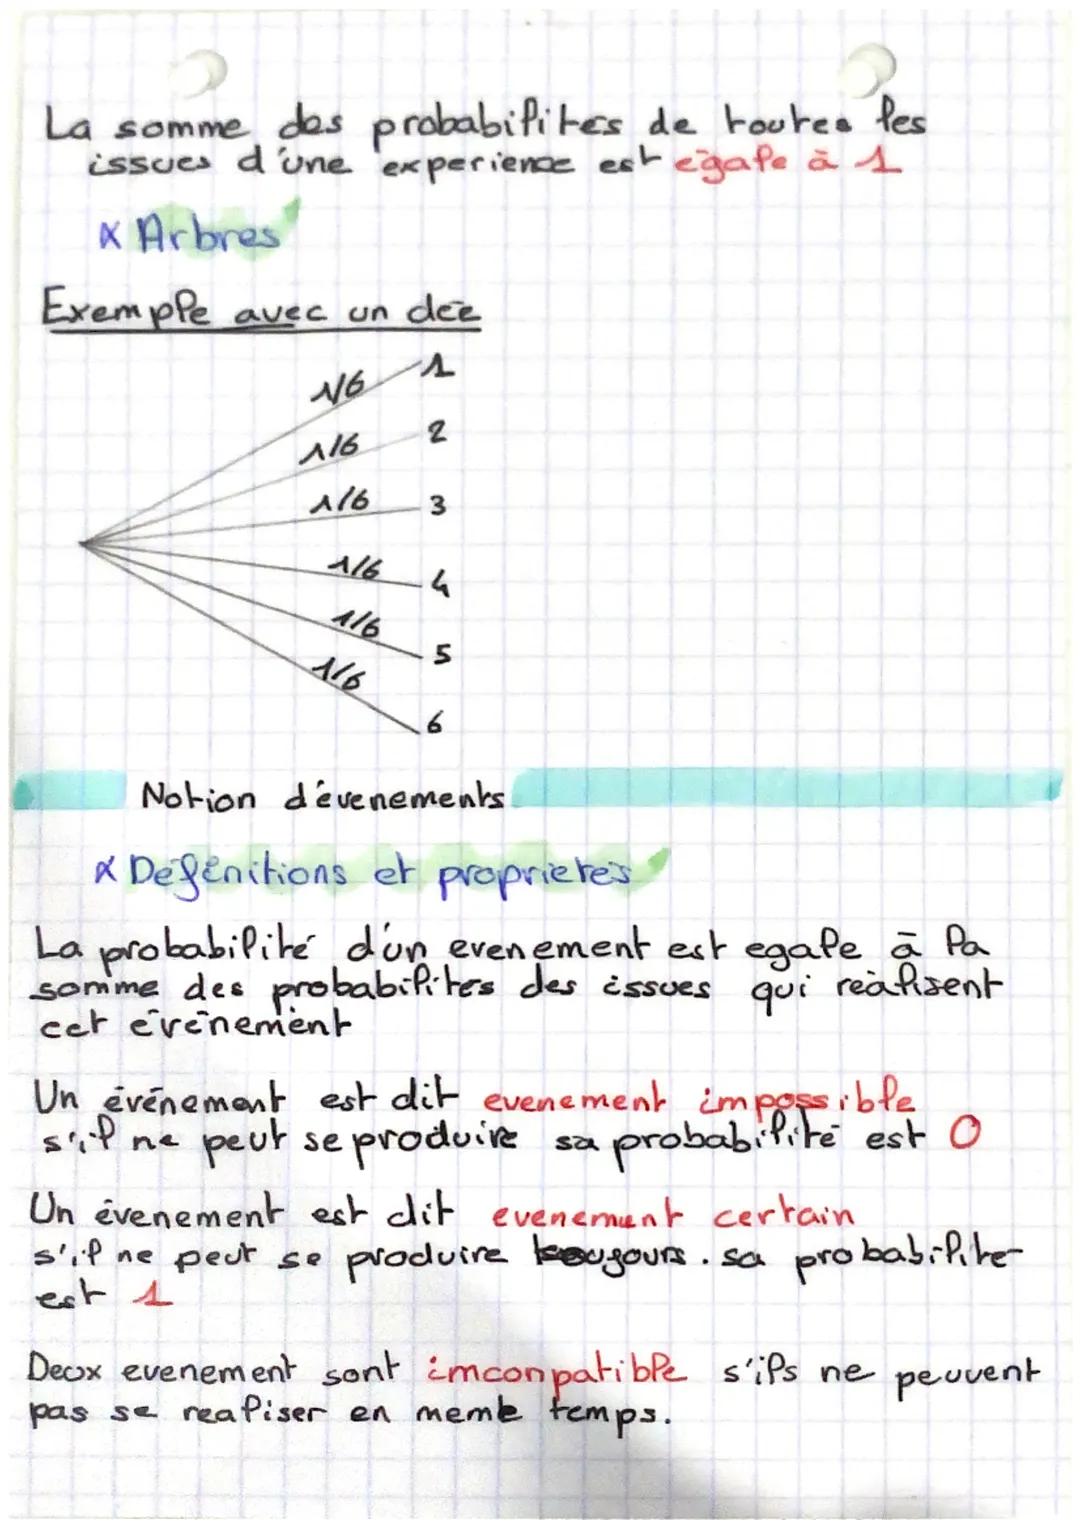 La somme des probabilites de toutes les
issues d'une experience est égale à 1
x Arbres
Exemple avec un dée
1/6 1
1/6 2
1/6 3
1/6 4
1/6 5
1/6 6
Notion d'évenements
x Définitions et proprietes
La probabilité d'un evenement est egale à la
somme des probabilites des issues qui réalisent
cet évenement
Un événement est dit evenement impossible
s'il ne peut se produire sa probabilité est 0
Un évenement est dit evenement certain
s'il ne peut se produire toujours. sa probabilite
est 1
Deux evenement sont imconpatible s'ils ne peuvent
pas se realiser en meme temps.